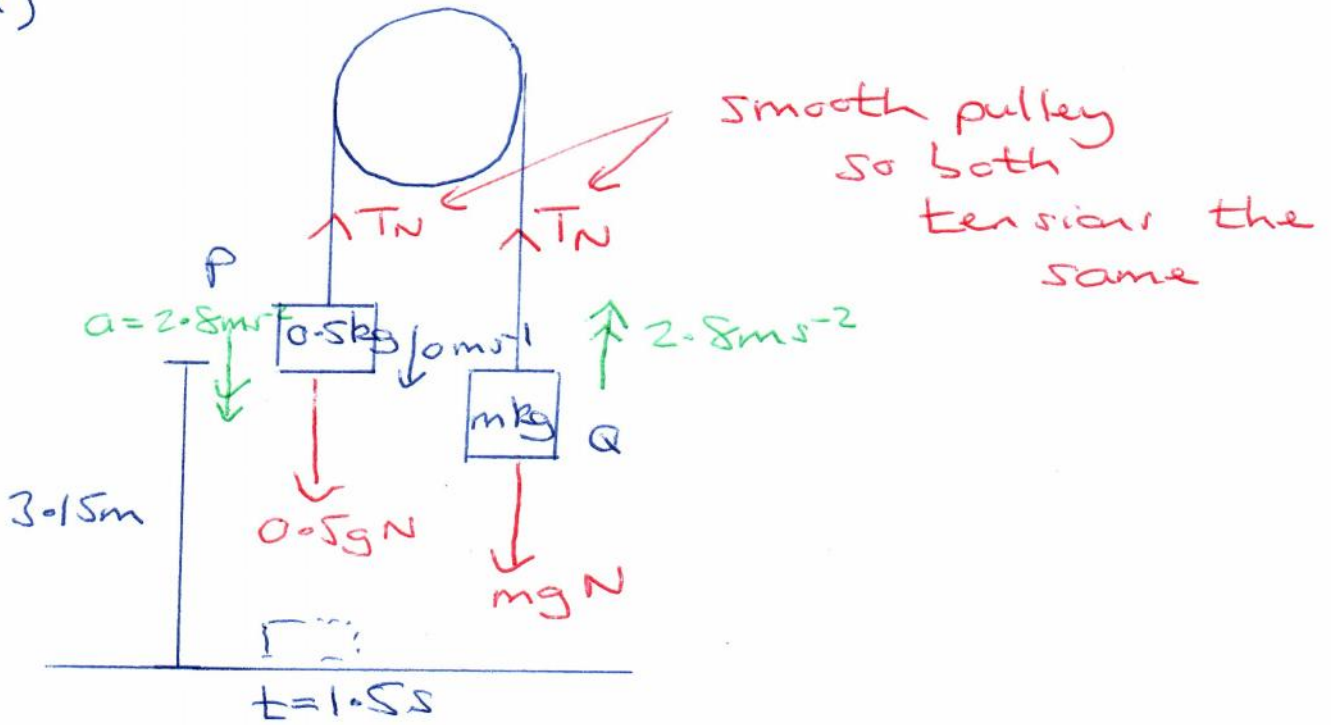 smooth pulley
so both
tensions the
same
TN
TN
P
a=2.8ms⁻²
0.5kg
0ms⁻¹
2.8ms⁻²
mkg
Q
3.15m
0.5gN
mgN
t=1.5s